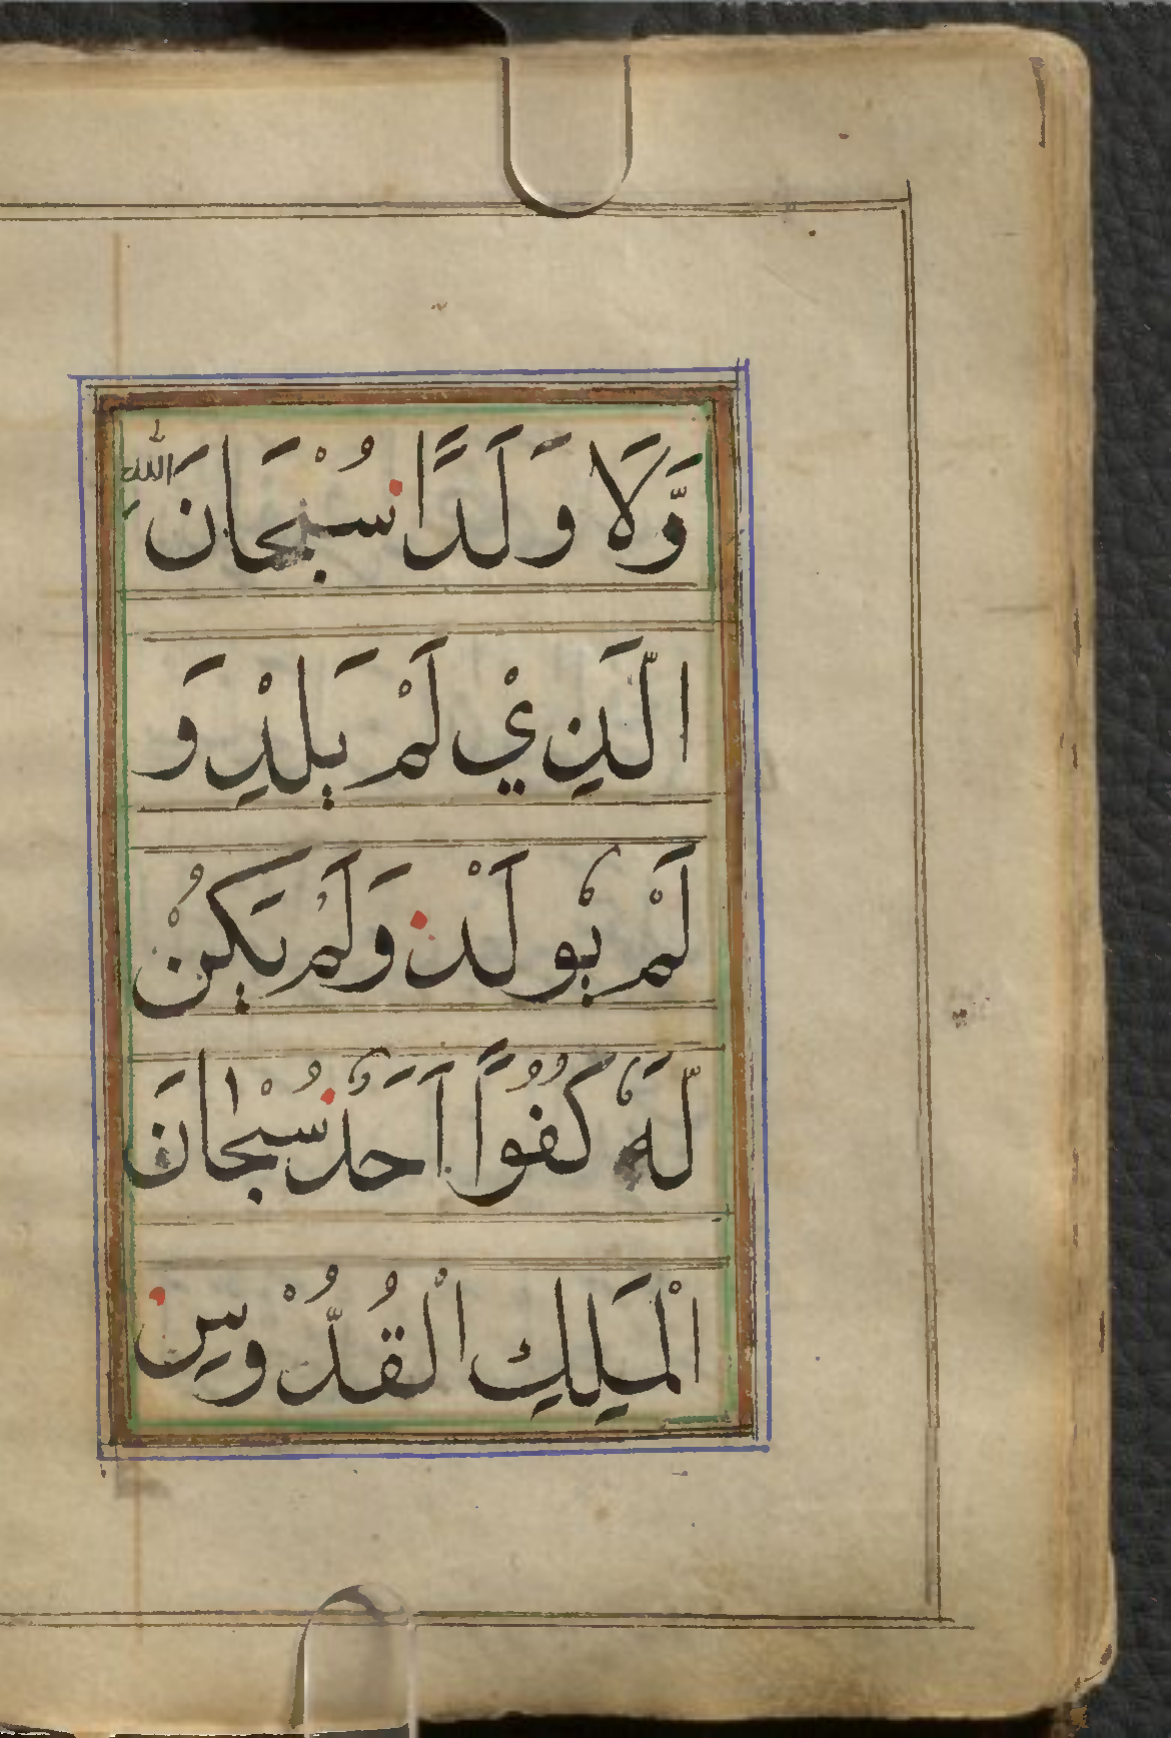 وَّلَا وَلَدًا سُبْحَانَ اللهِ
الَّذِيْ لَمْ يَلِدْ وَ
لَمْ يُوْلَدْ وَلَمْ يَكُنْ
لَّهٗ كُفُوًا اَحَدٌ سُبْحَانَ
الْمَلِكِ الْقُدُّوْسِ